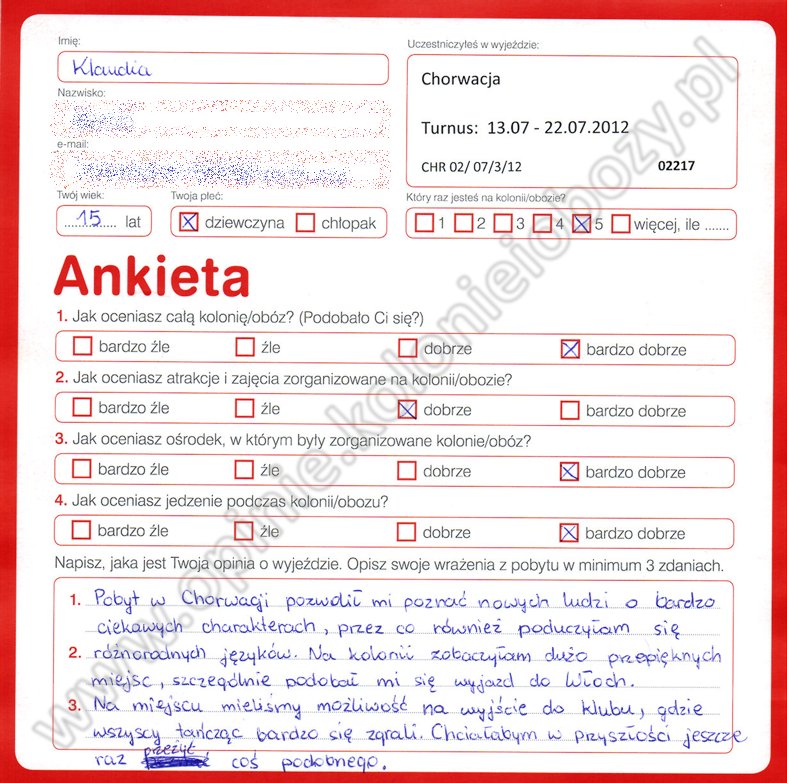 Imię:
Klaudia
Uczestniczyłeś w wyjeździe:
Chorwacja
Turnus: 13.07 - 22.07.2012
CHR 02/ 07/3/12 02217
Nazwisko:
e-mail:
Twój wiek:
15 lat
Twoja płeć:
dziewczyna chłopak
Który raz jesteś na kolonii/obozie?
1 2 3 4 5 więcej, ile .......
Ankieta
1. Jak oceniasz całą kolonię/obóz? (Podobało Ci się?)
bardzo źle źle dobrze bardzo dobrze
2. Jak oceniasz atrakcje i zajęcia zorganizowane na kolonii/obozie?
bardzo źle źle dobrze bardzo dobrze
3. Jak oceniasz ośrodek, w którym były zorganizowane kolonie/obóz?
bardzo źle źle dobrze bardzo dobrze
4. Jak oceniasz jedzenie podczas kolonii/obozu?
bardzo źle źle dobrze bardzo dobrze
Napisz, jaka jest Twoja opinia o wyjeździe. Opisz swoje wrażenia z pobytu w minimum 3 zdaniach.
1. Pobyt w Chorwacji pozwolił mi poznać nowych ludzi o bardzo
ciekawych charakterach, przez co również poduczyłam się
2. różnorodnych języków. Na kolonii zobaczyłam dużo przepięknych
miejsc, szczególnie podobał mi się wyjazd do Włoch.
3. Na miejscu mieliśmy możliwość na wyjście do klubu, gdzie
wszyscy tańcząc bardzo się zgrali. Chciałabym w przyszłości jeszcze
raz przeżyć coś podobnego.
www.opinie.kolonieiobozy.pl